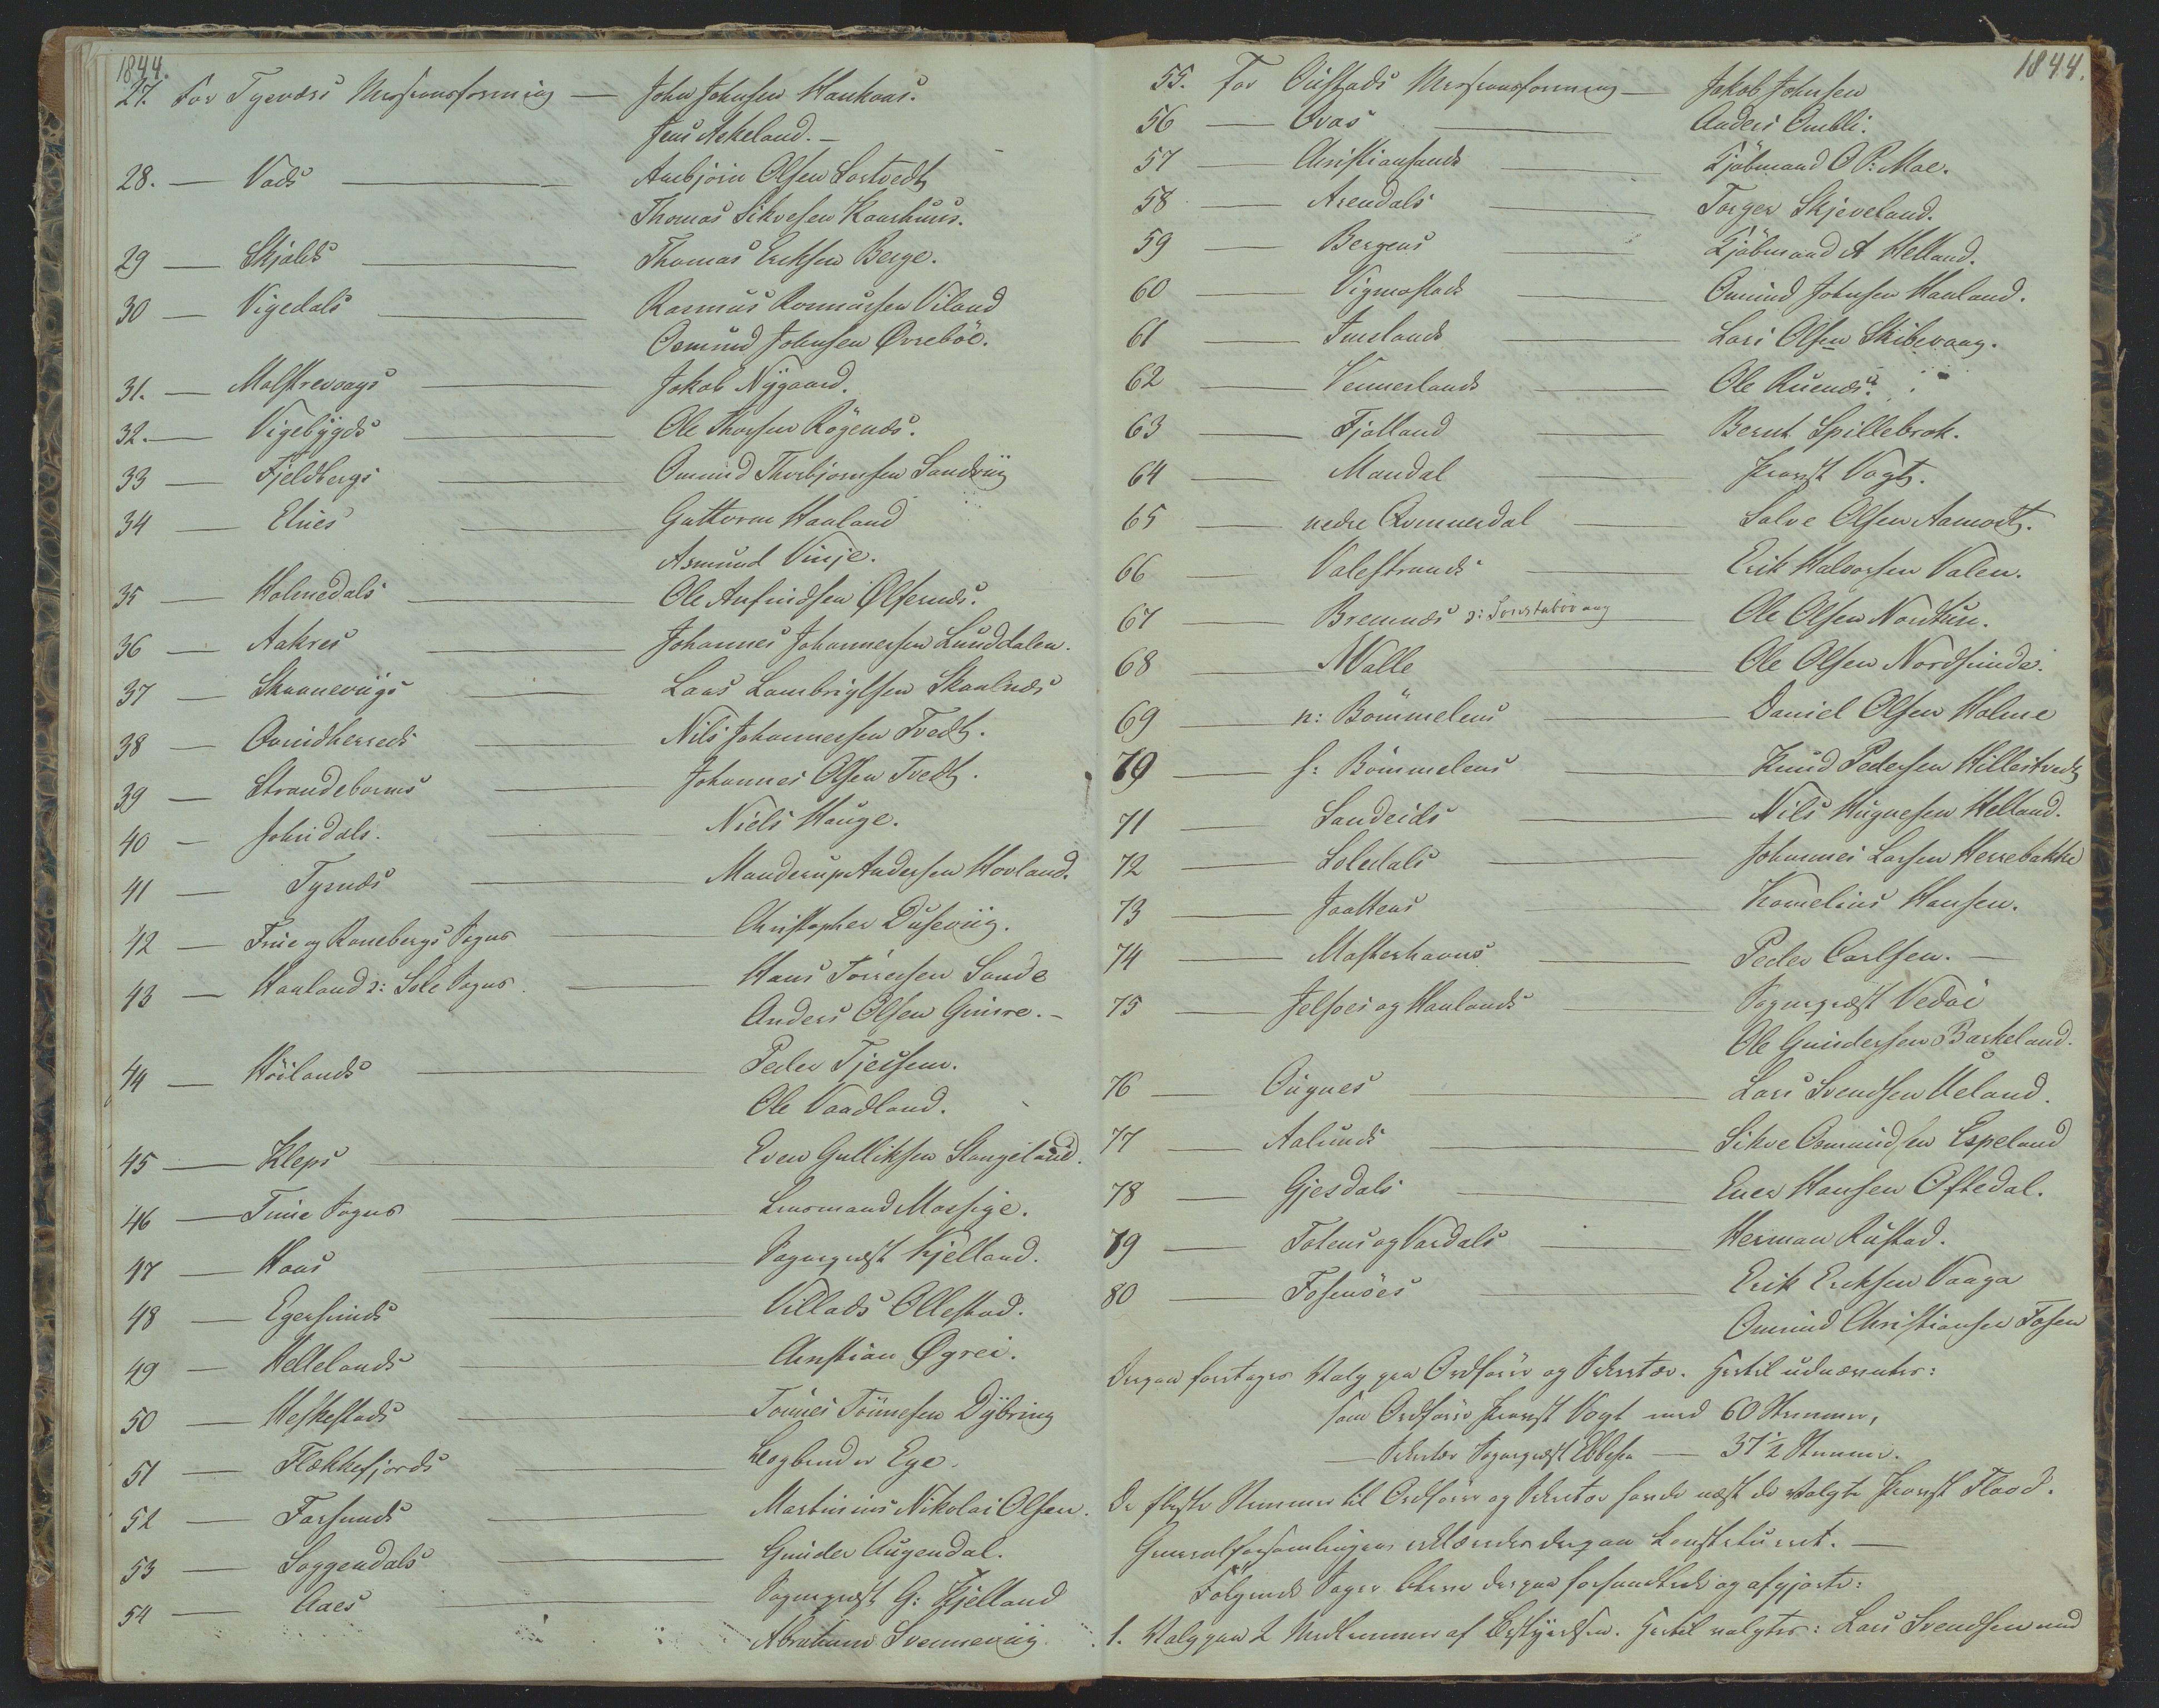 1844.
27. For Tysvær's Missionsforening — John Johnsen Haukaas.
Jens Askeland. —
28. — Vads — Anbjörn Olsen Sortvedt
Thomas Sikvesen Kaarhuus.
29 — Skjolds — Thomas Eriksen Berge.
30 — Vigedals — Rasmus Rasmussen Viland
Osmund Johnsen Øvreböe.
31. — Molstrevaags — Jakob Nygaard.
32. — Vigebygds — Ole Thorsen Rögenæs.
33 — Fjeldbergs — Omund Thorbjornsen Sandviig
34 — Etnes — Guttorm Haaland
Asmund Vinje.
35 — Holmedals — Ole Anfindsen Ølfernæs.
36 — Aakres — Johannes Johannessen Lunddalen.
37 — Skaaneviigs — Laas Lambrigtsen Skaalnæs
38 — Qvindherreds — Nils Johannessen Tvedt.
39 — Strandebarms — Johannes Olsen Tvedt.
40 — Jondals. — Niels Hauge.
41 — Tysnæs — Manderup Andersen Hovland.
42 — Frue og Ranebergs Sogns — Christopher Duseviig.
43 — Haaland ɔ: Sole Sogns. — Hans Törresen Sande
Anders Olsen Grürre. —
44 — Höilands — Peder Tjersem.
Ole Vaadland.
45 — Kleps — Even Gulliksen Stangeland.
46 — Time Sogns — Lensmand Mossige.
47 — Haas — Sogneprest Kjelland.
48 — Egersunds — Villads Ollestad.
49 — Hellelands — Christian Øgrei.
50 — Heskestads — Tönnes Tönnesen Dybring
51 — Flekkefjords — Bogbinder Ege.
52 — Farsunds — Martinius Nikolai Olsen.
53 — Soggendals — Gunder Augendal.
54 — Aaes — Sogneprest G: Kjelland
Abraham Svenneviig.
1844.
55. For Oustads Missionsforening — Jakob Johnsen
56 — Qvas — Anders Ombli.
57 — Christiansands — Kjöbmand O P: Moe.
58 — Arendals — Torger Skjeveland.
59 — Bergens — Kjöbmand A Helland.
60 — Vigmostads — Omund Johnsen Haaland.
61 — Imslands — Lars Olsen Skibevaag.
62 — Vennerlands — Ole Ruenæs.
63 — Fjotland — Bernt Spillebrok.
64 — Mandal — Provst Vogt.
65 — nedre Qvinnesdal — Salve Olsen Aamodt.
66 — Valestrands — Erik Halvorsen Valen.
67 — Bremnæs ɔ: Sorstabövaag — Ole Olsen Nordtun.
68 — N Valle — Ole Olsen Nordhunde.
69 — n: Bömmelens — Daniel Olsen Holme
70 — s: Bömmelens — Knud Pedersen Hillestvedt
71 — Sandeids — Nils Hugnesen Helland.
72 — Soledals — Johannes Larsen Herrebakke
73 — Jaattens — Kornelius Hansen.
74 — Mosterhavns — Peder Carlsen. —
75 — Jelsøes og Haalands — Sogneprest Vedöe
Ole Gundersen Barkeland.
76 — Ougnes — Lars Svendsen Ueland.
77 — Aalunds — Sikve Osmundsen Espeland
78 — Gjesdals — Enes Hansen Oftedal.
79 — Totens og Vardals — Herman Rustad.
80 — Fosenöes — Erik Eriksen Vaaga
Omund Christiansen Fosen
Derpaa foretages Valg paa Ordförer og Sekretær. Hertil udnævntes:
som Ordförer Provst Vogt med 60 Stemmer,
— Sekretær Sogneprest Ebbesen — 37 1/2 Stemmer.
De fleste Stemmer til Ordförer og Sekretær havde næst de Valgte Provst Flood.
Generalforsamlingen erklæredes derpaa konstitueret. —
Fölgende Sager bleve derpaa forhandlede og afgjorte:
1. Valg paa 2 Medlemmer af Bestyrelsen. Hertil valgtes: Lars Svendsen med